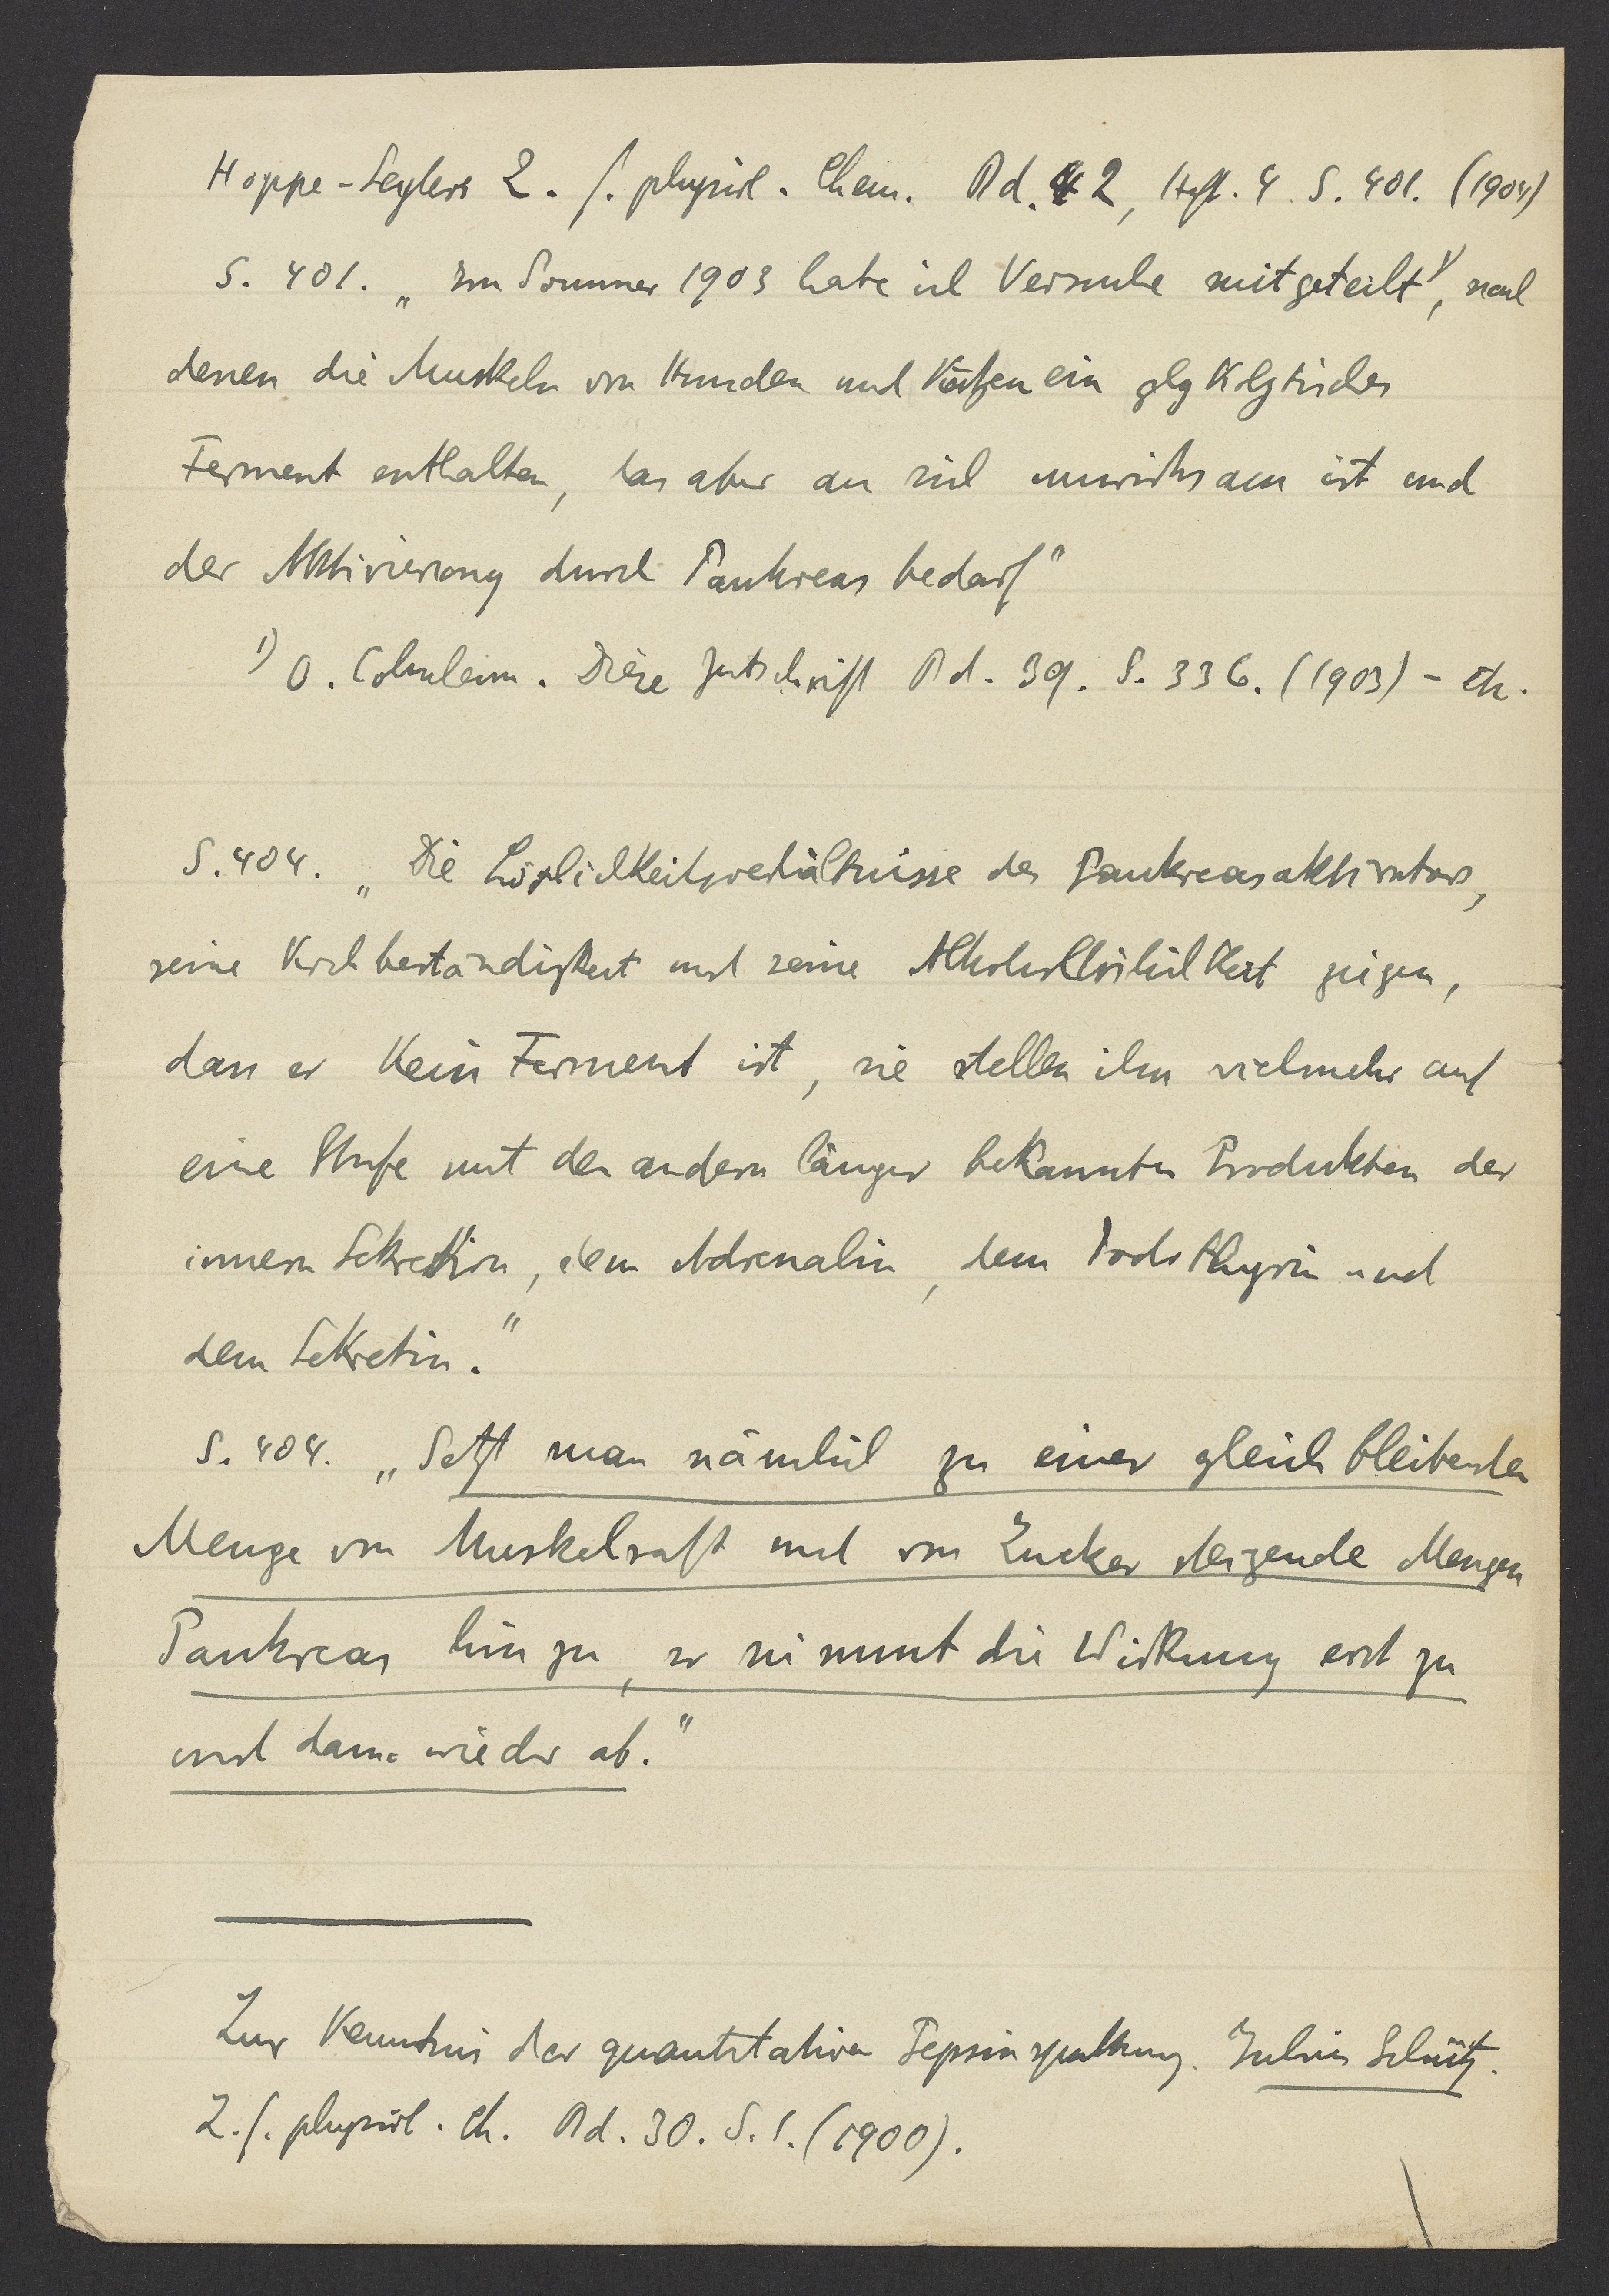 Hoppe-Seylers Z. f. physiol. Chem. Bd. 42, Heft. 4 S. 401. (1904)
S. 401. „Im Sommer 1903 habe ich Versuche mitgeteilt¹⁾, nach
denen die Muskeln von Hunden und Katzen ein glykolytisches
Ferment enthalten, das aber an sich unwirksam ist und
der Aktivierung durch Pankreas bedarf"
¹⁾ O. Cohnheim. Diese Zeitschrift Bd. 39. S. 336. (1903) –
S. 404. „Die Löslichkeitsverhältnisse des Pankreasaktivators,
seine Kochbeständigkeit und seine Alkohollöslichkeit zeigen,
dass er kein Ferment ist, sie stellen ihn vielmehr auf
eine Stufe mit den andern länger bekannten Produkten der
innern Sekretion, dem Adrenalin, dem Jodothyrin und
dem Sekretin."
S. 404. „Setzt man nämlich zu einer gleich bleibenden
Menge von Muskelsaft und von Zucker steigende Mengen
Pankreas hinzu, so nimmt die Wirkung erst zu
und dann wieder ab."
Zur Kenntnis der quantitativen Pepsinspaltung. Julius Schütz.
Z. f. physiol. Ch. Bd. 30. S. 1. (1900).